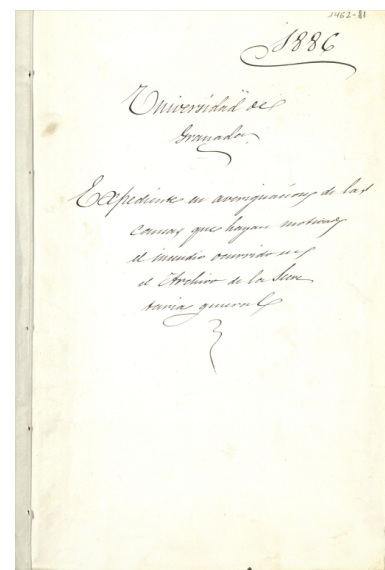 1462-81
1886
Universidad de
Granada.
Expediente en averiguacion de las
causas que hayan motivado
el incendio ocurrido en
el Archivo de la Secre
taria general